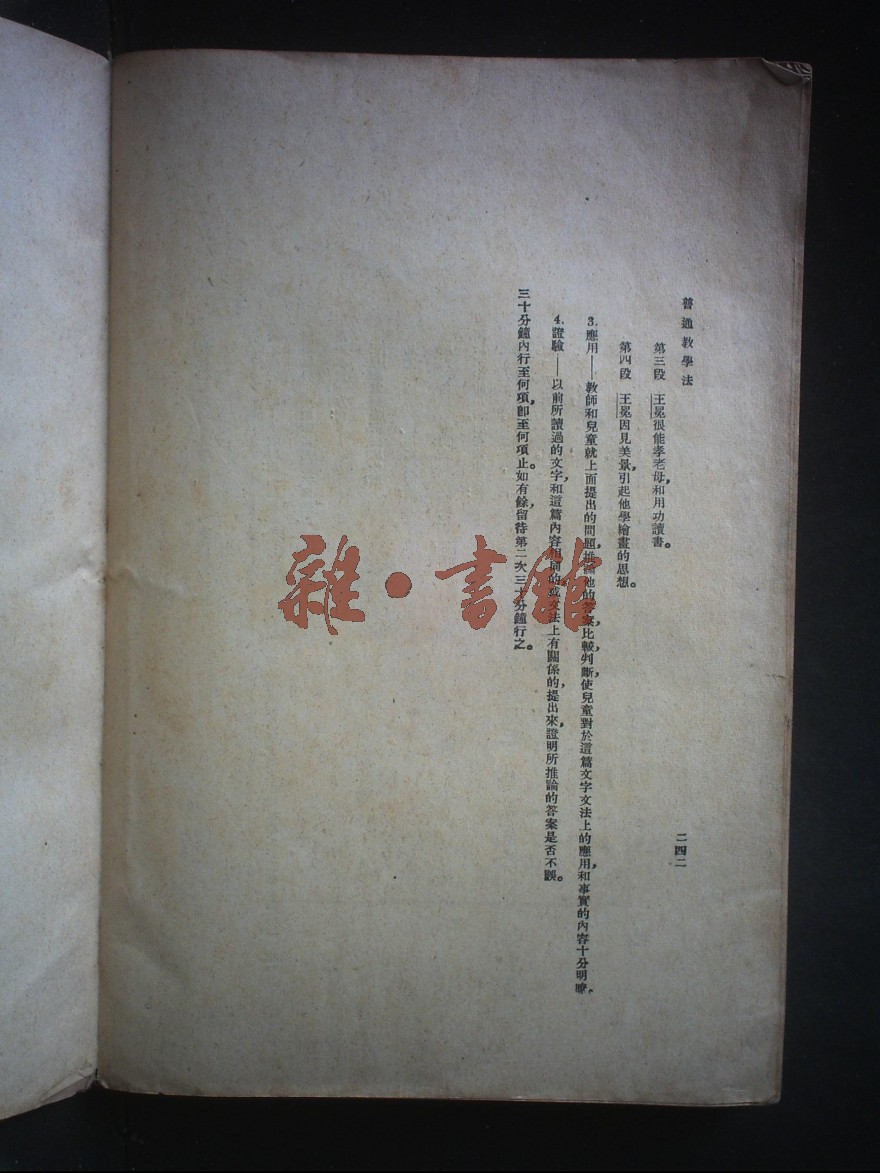 普通教學法
二四二
第三段 王冕很能孝老母，和用功讀書。
第四段 王冕因見美景，引起他學繪畫的思想。
3. 應用——教師和兒童就上面提出的問題，推論他的答案，比較，判斷，使兒童對於這篇文字文法上的應用，和事實的內容十分明瞭。
4. 證驗——以前所讀過的文字，和這篇內容相同的，或文法上有關係的，提出來，證明所推論的答案是否不誤。
三十分鐘內行至何項，卽至何項止。如有餘，留待第二次三十分鐘行之。
雜·書館